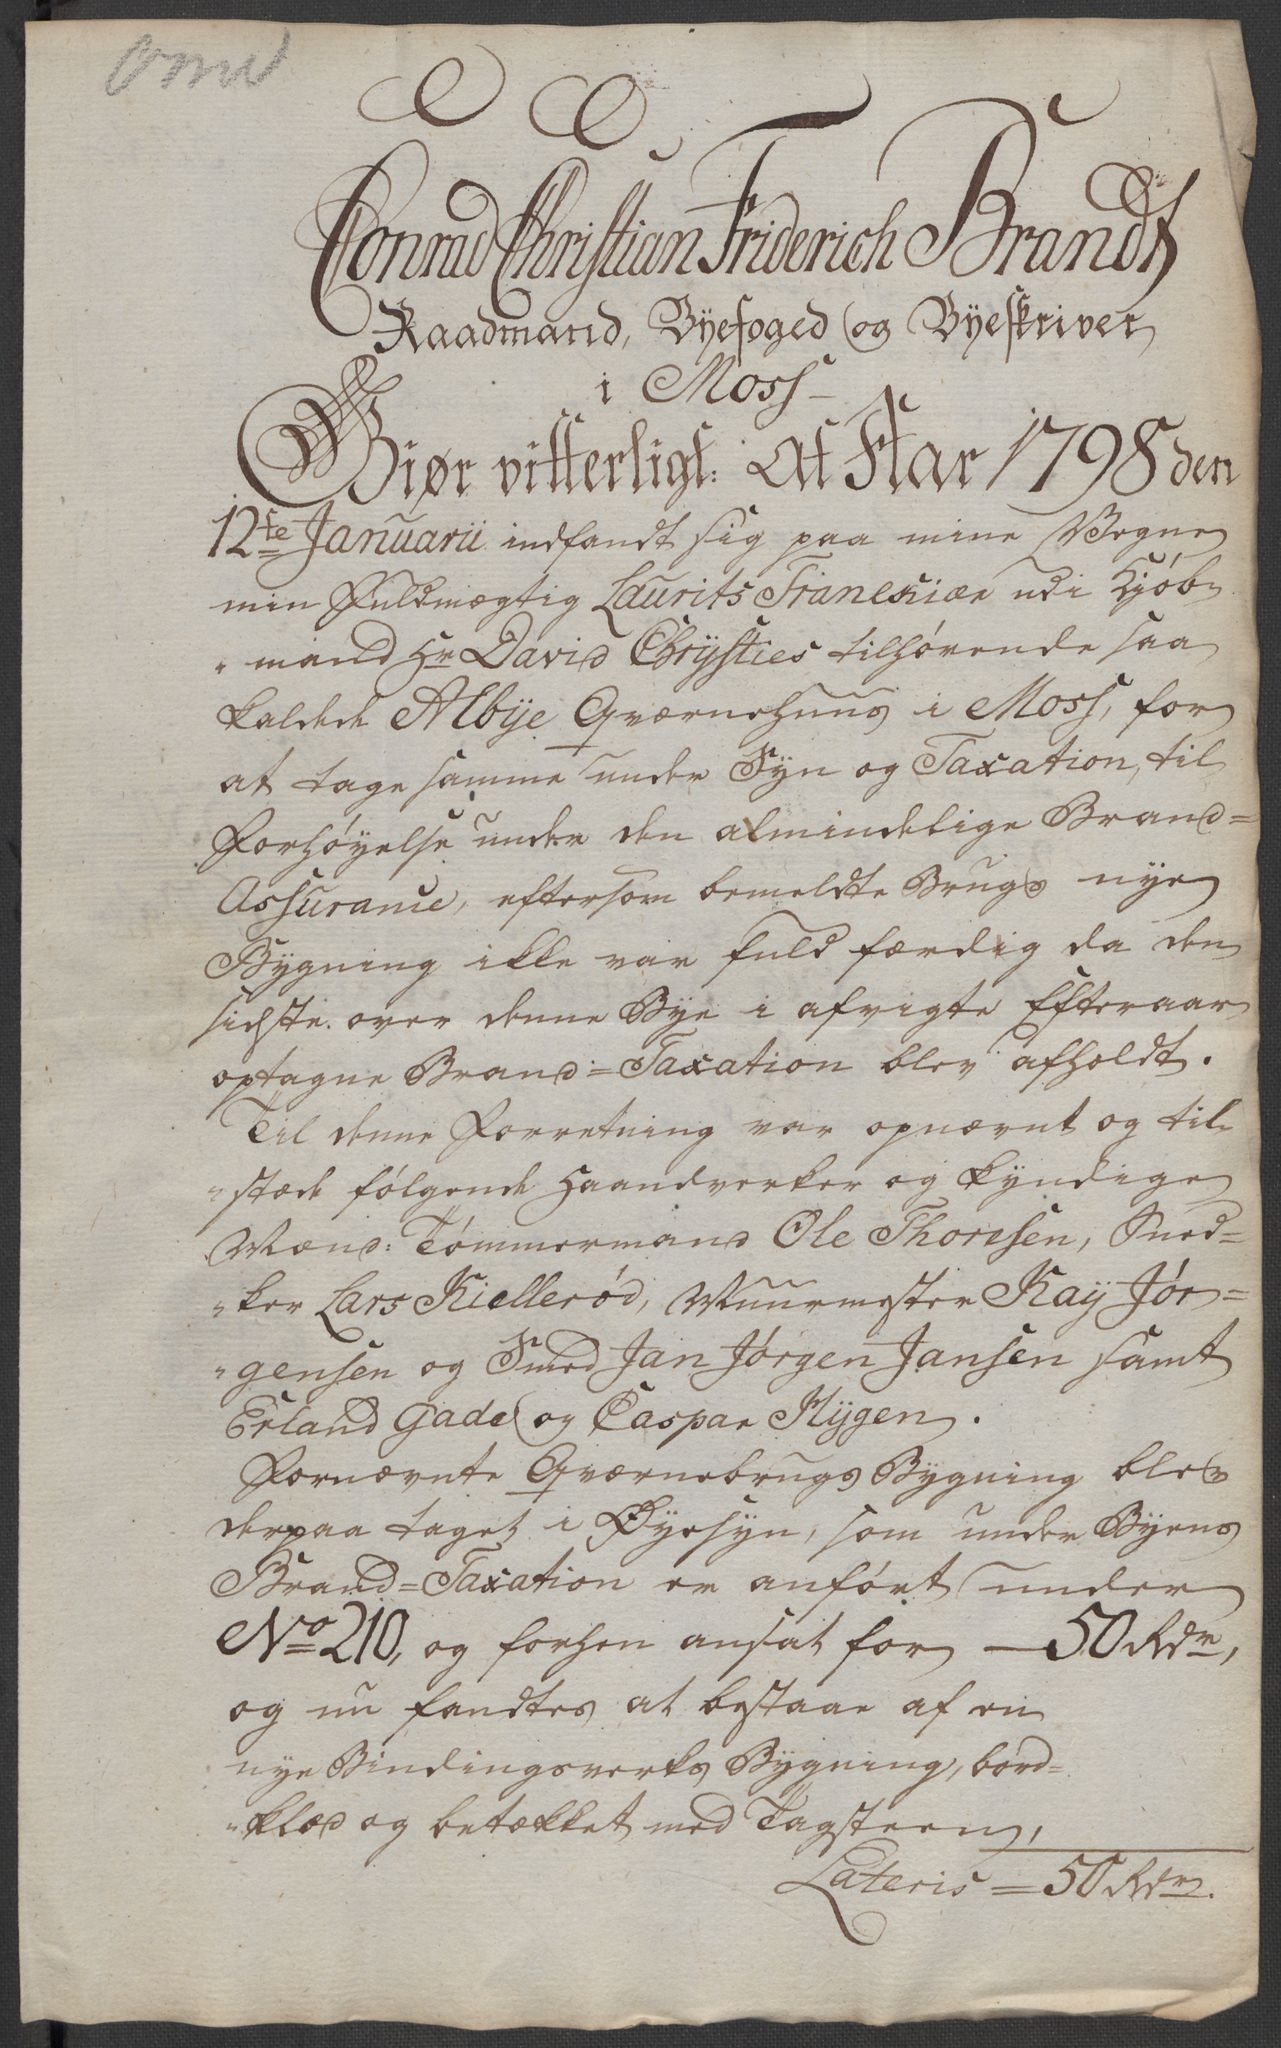 Omd
Conrad Christian Friderich Brandt
Raadmand, Byefoged og Byeskriver
i Moss
Giør vitterligt: At Aar 1798 den
12te Januarii indfandt sig paa mine Vegne
min Fuldmægtig Laurits Franckiær udi Kjöb-
„mand Hr David Chrysties tilhörende saa
kaldede Albÿe Qværnehuus i Moss, for
at tage samme under Syn og Taxation, til
Forhöyelse under den almindelige Brand=
Assurance, eftersom bemeldte Brugs nye
Bygning ikke var fuld færdig da den
sidste over denne Bye i afvigte Efteraar
optagne Brand=Taxation blev afholdt.
Til denne Forretning var opnævnt og til-
„stæde fölgende Haandverker og kyndige
Mænd: Tömmermand Ole Thoresen, Sned=
„ker Lars Kiellerød, Muurmester Kaÿ Jör=
„gensen og Smed Jan Jörgen Jansen samt
Erland Gade og Caspar Hÿgen.
Fornævnte Qværnebrugs Bygning blev
derpaa taget i Øyesyn, som under Byens
Brand=Taxation er anfört under
No 210, og forhen ansat for — 50 Rdr,
og nu fandtes at bestaae af en
nye Bindingsverks Bygning, bord=
„klæd og betækket med Tagsteen,
Lateris = 50 Rdr.